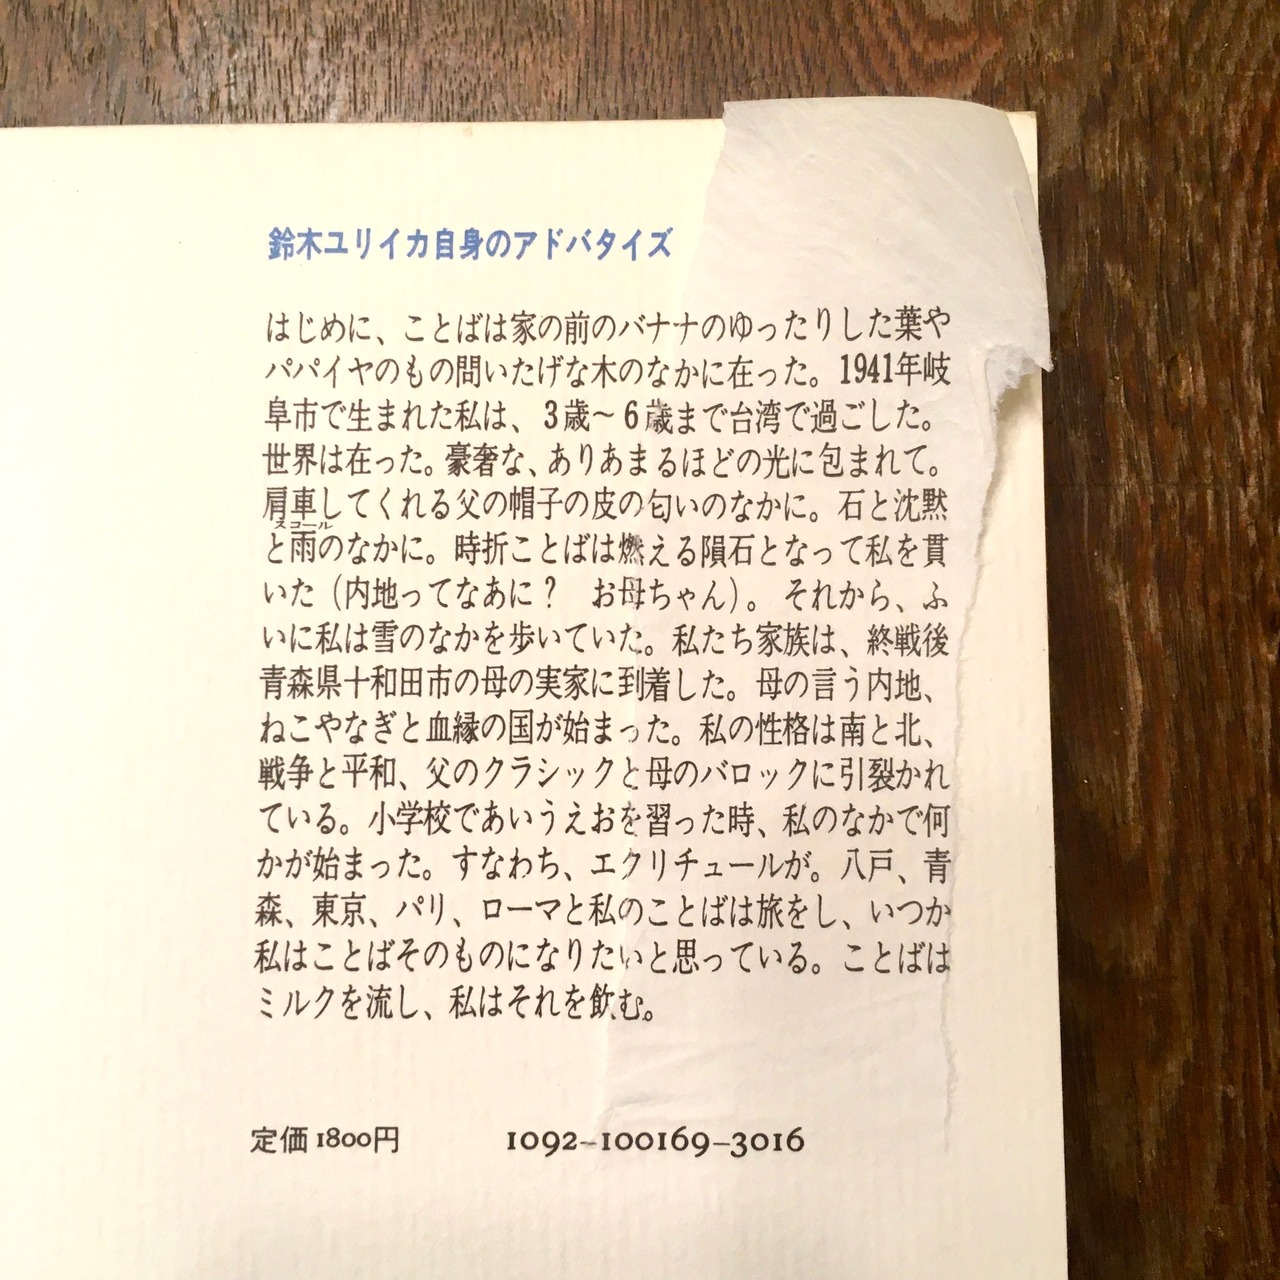 鈴木ユリイカ自身のアドバタイズ
はじめに、ことばは家の前のバナナのゆったりした葉や
パパイヤのもの問いたげな木のなかに在った。1941年岐
阜市で生まれた私は、3歳〜6歳まで台湾で過ごした。
世界は在った。豪奢な、ありあまるほどの光に包まれて。
肩車してくれる父の帽子の皮の匂いのなかに。石と沈黙
スコール
と雨のなかに。時折ことばは燃える隕石となって私を貫
いた（内地ってなあに？　お母ちゃん）。それから、ふ
いに私は雪のなかを歩いていた。私たち家族は、終戦後
青森県十和田市の母の実家に到着した。母の言う内地、
ねこやなぎと血縁の国が始まった。私の性格は南と北、
戦争と平和、父のクラシックと母のバロックに引裂かれ
ている。小学校であいうえおを習った時、私のなかで何
かが始まった。すなわち、エクリチュールが。八戸、青
森、東京、パリ、ローマと私のことばは旅をし、いつか
私はことばそのものになりたいと思っている。ことばは
ミルクを流し、私はそれを飲む。
定価1800円　1092-100169-3016